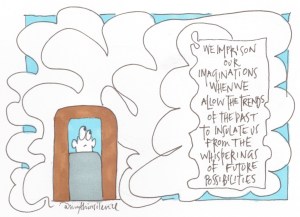 WE IMPRISON
OUR
IMAGINATIONS
WHEN WE
ALLOW THE TRENDS
OF THE PAST
TO INSULATE US
FROM THE
WHISPERINGS
OF FUTURE
POSSIBILITIES